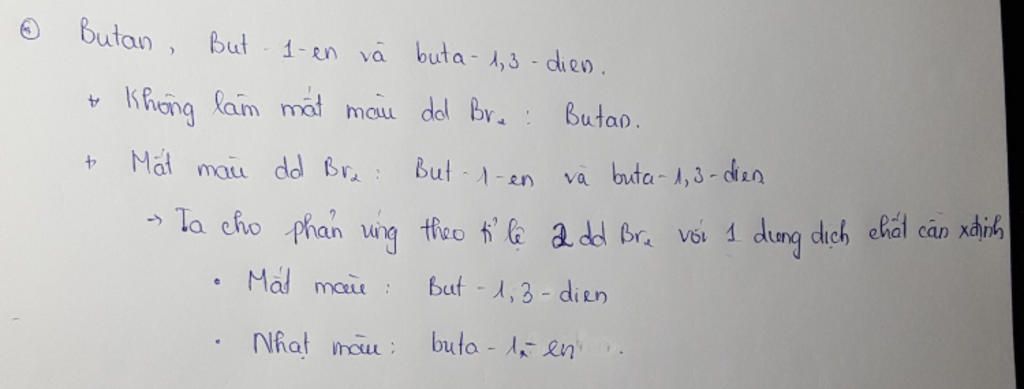 ⑤ Butan, But-1-en và buta-1,3-dien.
+ Không làm mất màu dd Br₂: Butan.
+ Mất màu dd Br₂: But-1-en và buta-1,3-dien
→ Ta cho phản ứng theo tỉ lệ 2 dd Br₂ với 1 dung dịch chất cần xđịnh
• Mất màu: But-1,3-dien
• Nhạt màu: buta-1-en.